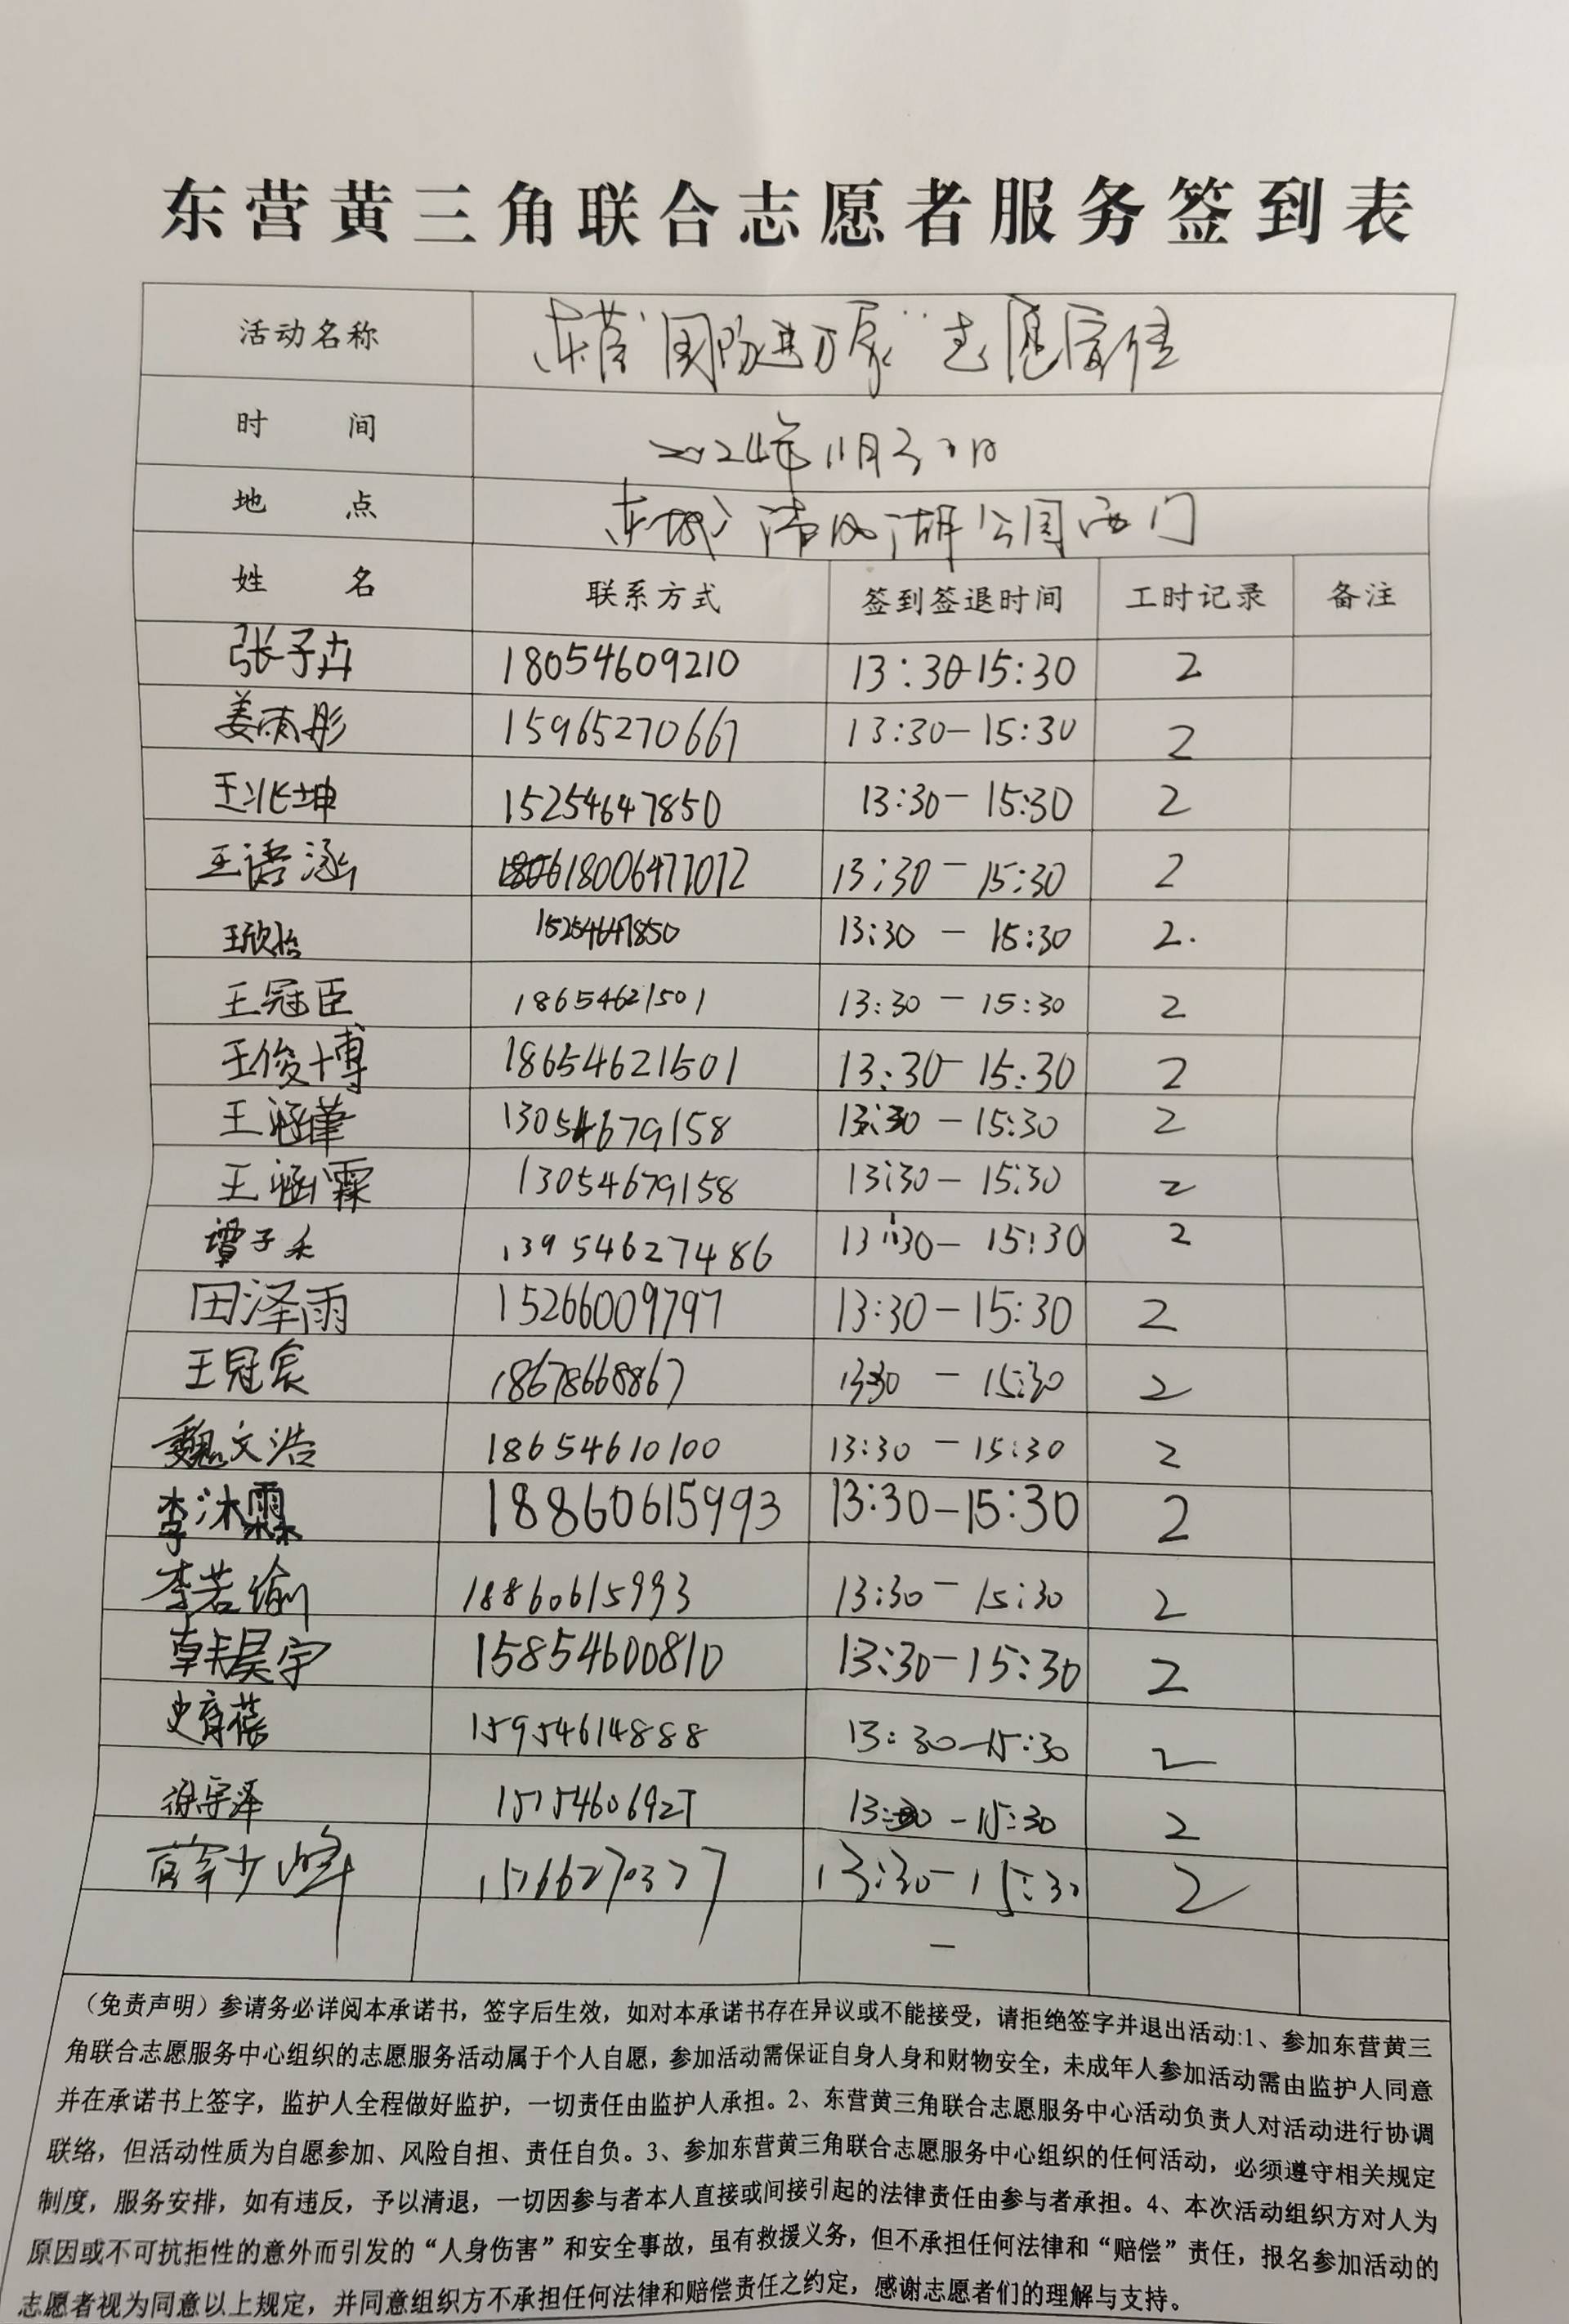 东营黄三角联合志愿者服务签到表
活动名称 东营"国防进万家"志愿宣传
时 间 2024年11月30日
地 点 东城清风湖公园西门
姓 名 联系方式 签到签退时间 工时记录 备注
张子卉 18054609210 13:30-15:30 2
姜雨彤 15965270667 13:30-15:30 2
王兆坤 15254647850 13:30-15:30 2
王诺涵 18006477072 13:30-15:30 2
王欣怡 15254647850 13:30-15:30 2.
王冠臣 18654621501 13:30-15:30 2
王俊博 18654621501 13:30-15:30 2
王涵 13054679158 13:30-15:30 2
王涵霖 13054679158 13:30-15:30 2
谭子禾 13954627486 13:30-15:30 2
田泽雨 15266009797 13:30-15:30 2
王冠宸 18678668867 13:30-15:30 2
魏文浩 18654610100 13:30-15:30 2
李沐霖 18860615993 13:30-15:30 2
李若瑜 18860615993 13:30-15:30 2
韩昊宇 15854600810 13:30-15:30 2
史育蓓 15954614888 13:30-15:30 2
徐守泽 13:30-15:30 2
薛少峰 13:30-15:30 2
-
（免责声明）参请务必详阅本承诺书，签字后生效，如对本承诺书存在异议或不能接受，请拒绝签字并退出活动:1、参加东营黄三
角联合志愿服务中心组织的志愿服务活动属于个人自愿，参加活动需保证自身人身和财物安全，未成年人参加活动需由监护人同意
并在承诺书上签字，监护人全程做好监护，一切责任由监护人承担。2、东营黄三角联合志愿服务中心活动负责人对活动进行协调
联络，但活动性质为自愿参加、风险自担、责任自负。3、参加东营黄三角联合志愿服务中心组织的任何活动，必须遵守相关规定
制度，服务安排，如有违反，予以清退，一切因参与者本人直接或间接引起的法律责任由参与者承担。4、本次活动组织方对人为
原因或不可抗拒性的意外而引发的“人身伤害”和安全事故，虽有救援义务，但不承担任何法律和“赔偿”责任，报名参加活动的
志愿者视为同意以上规定，并同意组织方不承担任何法律和赔偿责任之约定，感谢志愿者们的理解与支持。